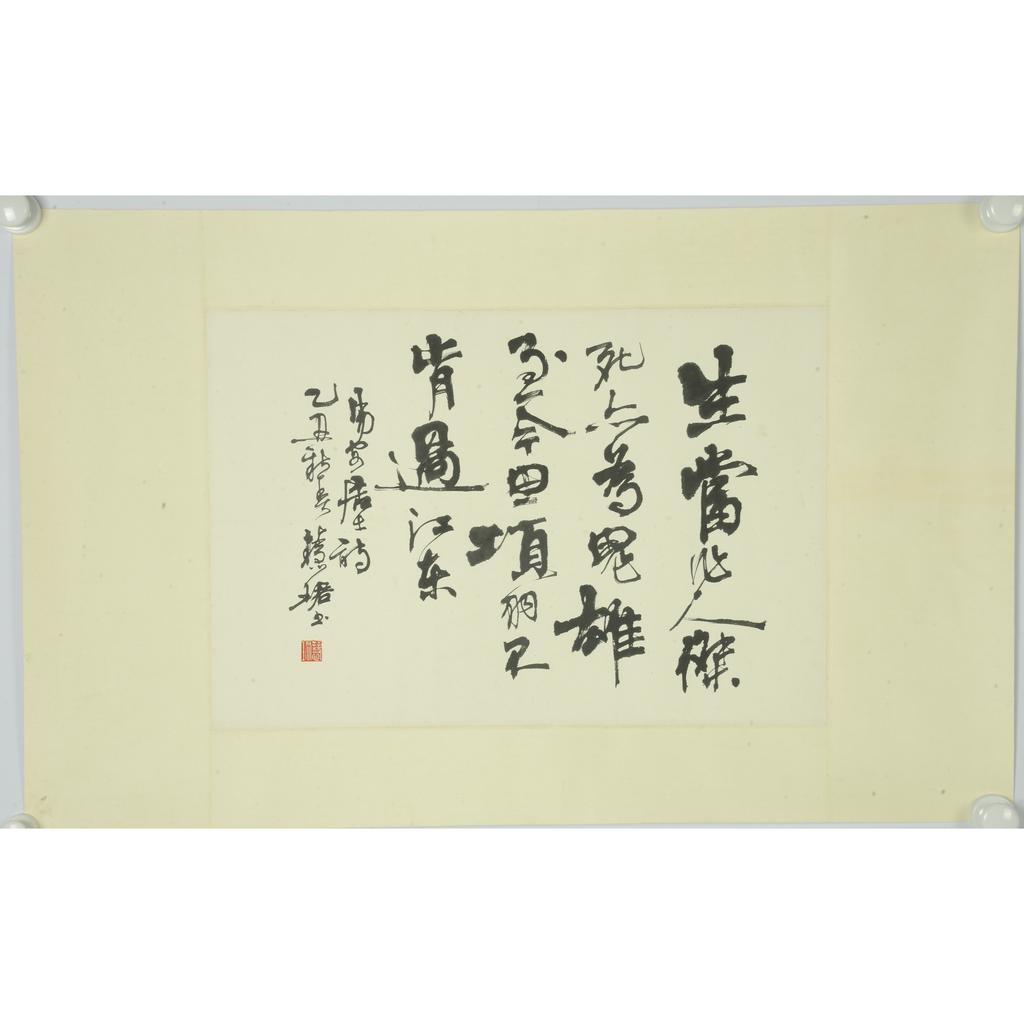 生當作人傑
死亦為鬼雄
至今思項羽不
肯過江东
易安居士詩
乙丑新春慧珺書